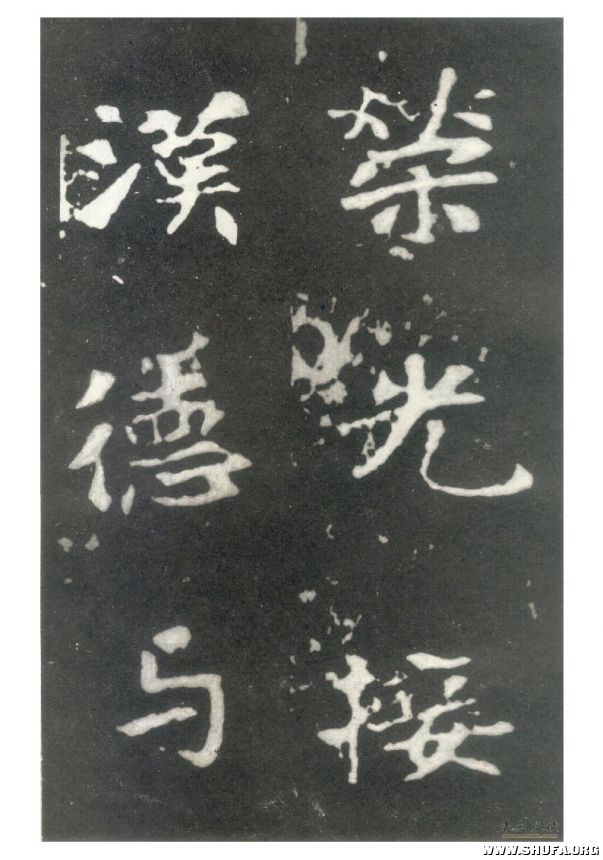 榮光接
漢德与
WWW.SHUFA.ORG